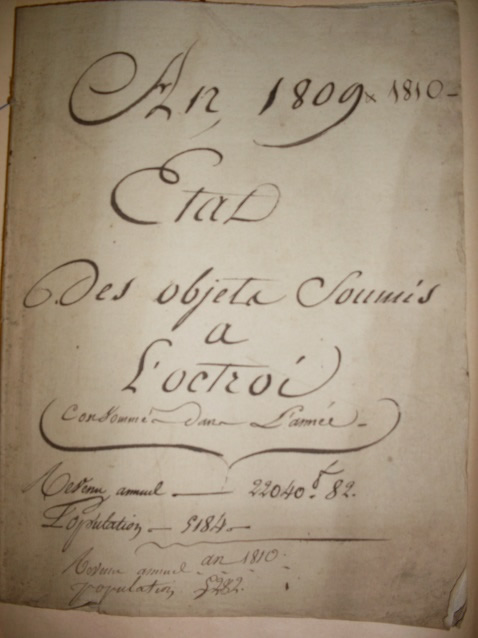 An 1809 x 1810 -
Etat
Des objets Soumis
a
L'octroi
Consommés dans L'année -
Revenu annuel — 22040 f. 82.
Population — 5184 -
Revenu annuel an 1810.
population 5282.